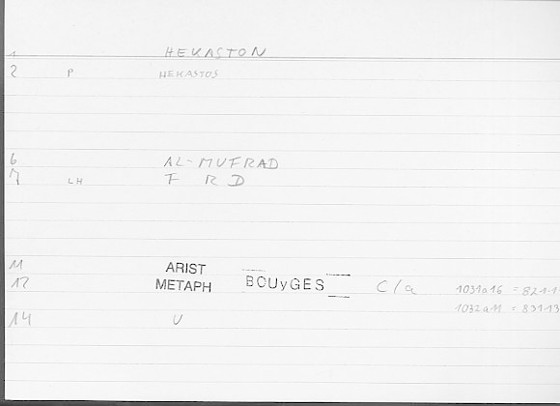 1 HEKASTON
2 P HEKASTOS
6 AL-MUFRAD
7 LH F R D
11 ARIST
12 METAPH BOUyGES C/a 1031a16 = 821-1
1032a11 = 831-13
14 U